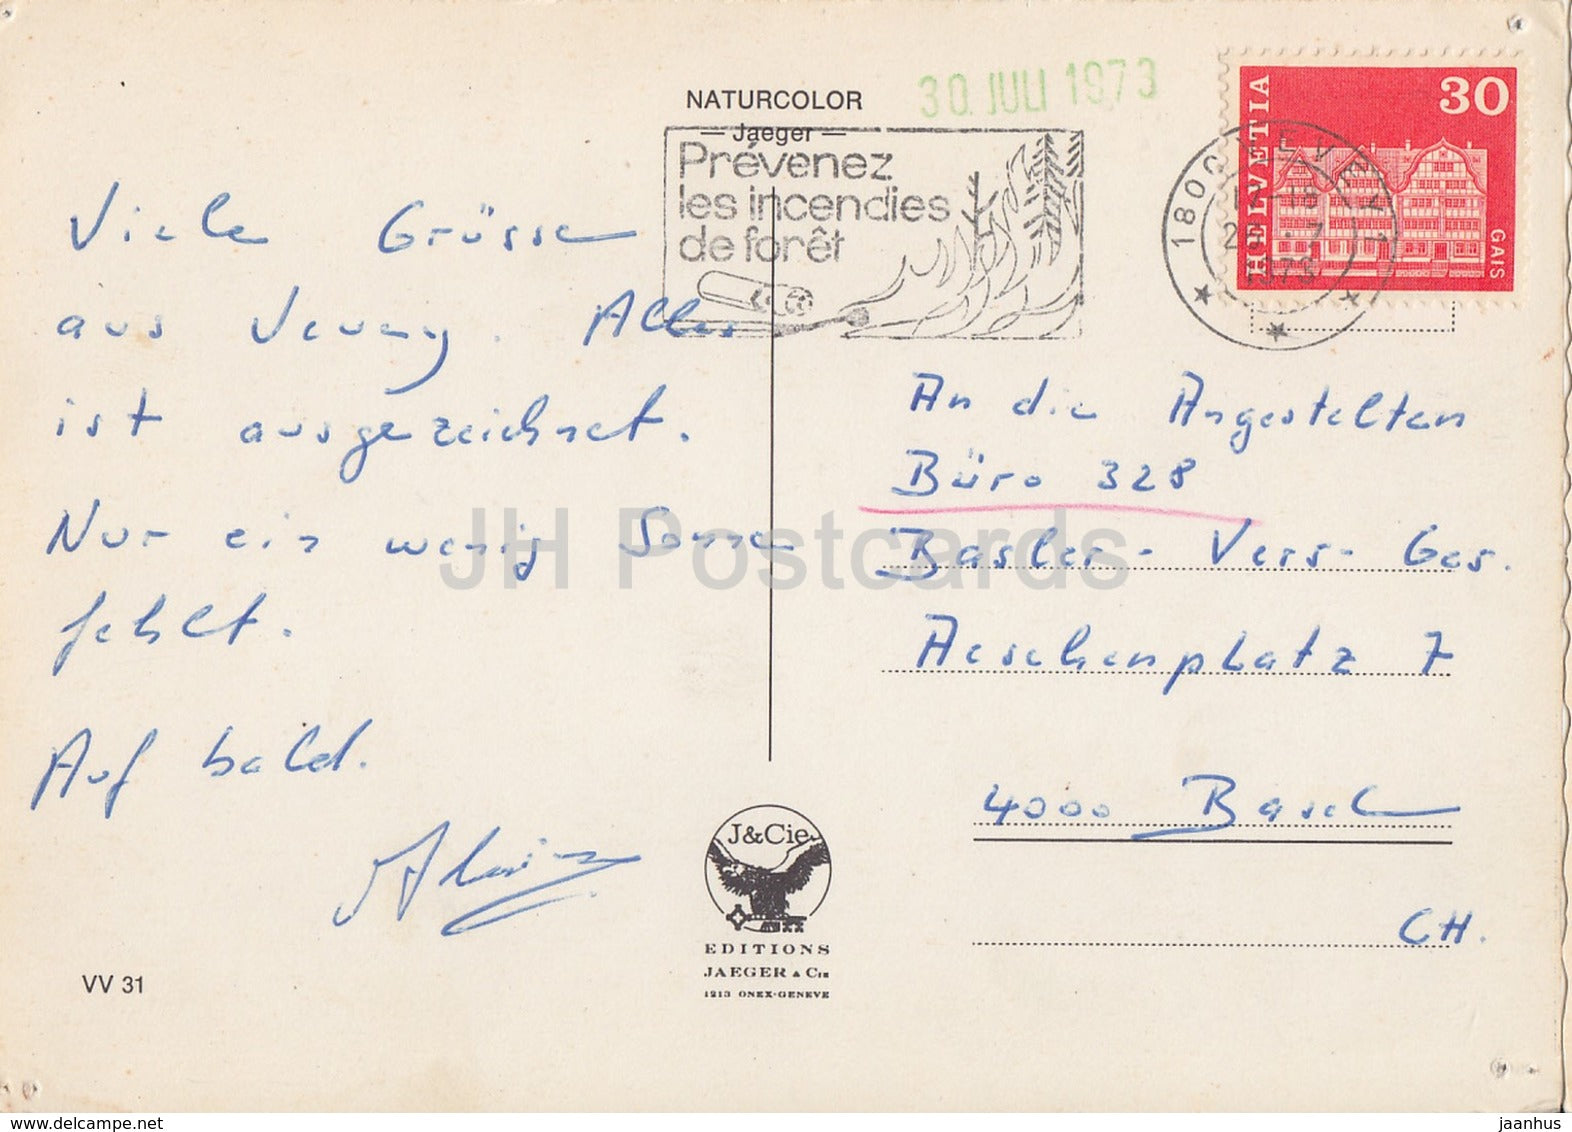 NATURCOLOR
— Jaeger —
30. JULI 1973
Prévenez
les incendies
de forêt
1800 VEVEY 1
17-18
1973
HELVETIA
30
GAIS
Viele Grüsse
aus Vevey. Alles
ist ausgezeichnet.
Nur ein wenig Sonne
fehlt.
Auf bald.
An die Angestellten
Büro 328
Basler-Vers-Ges.
Aeschenplatz 7
4000 Basel
CH.
J&Cie
EDITIONS
JAEGER & Cie
1213 ONEX-GENEVE
VV 31
JH Postcards
jaanhus